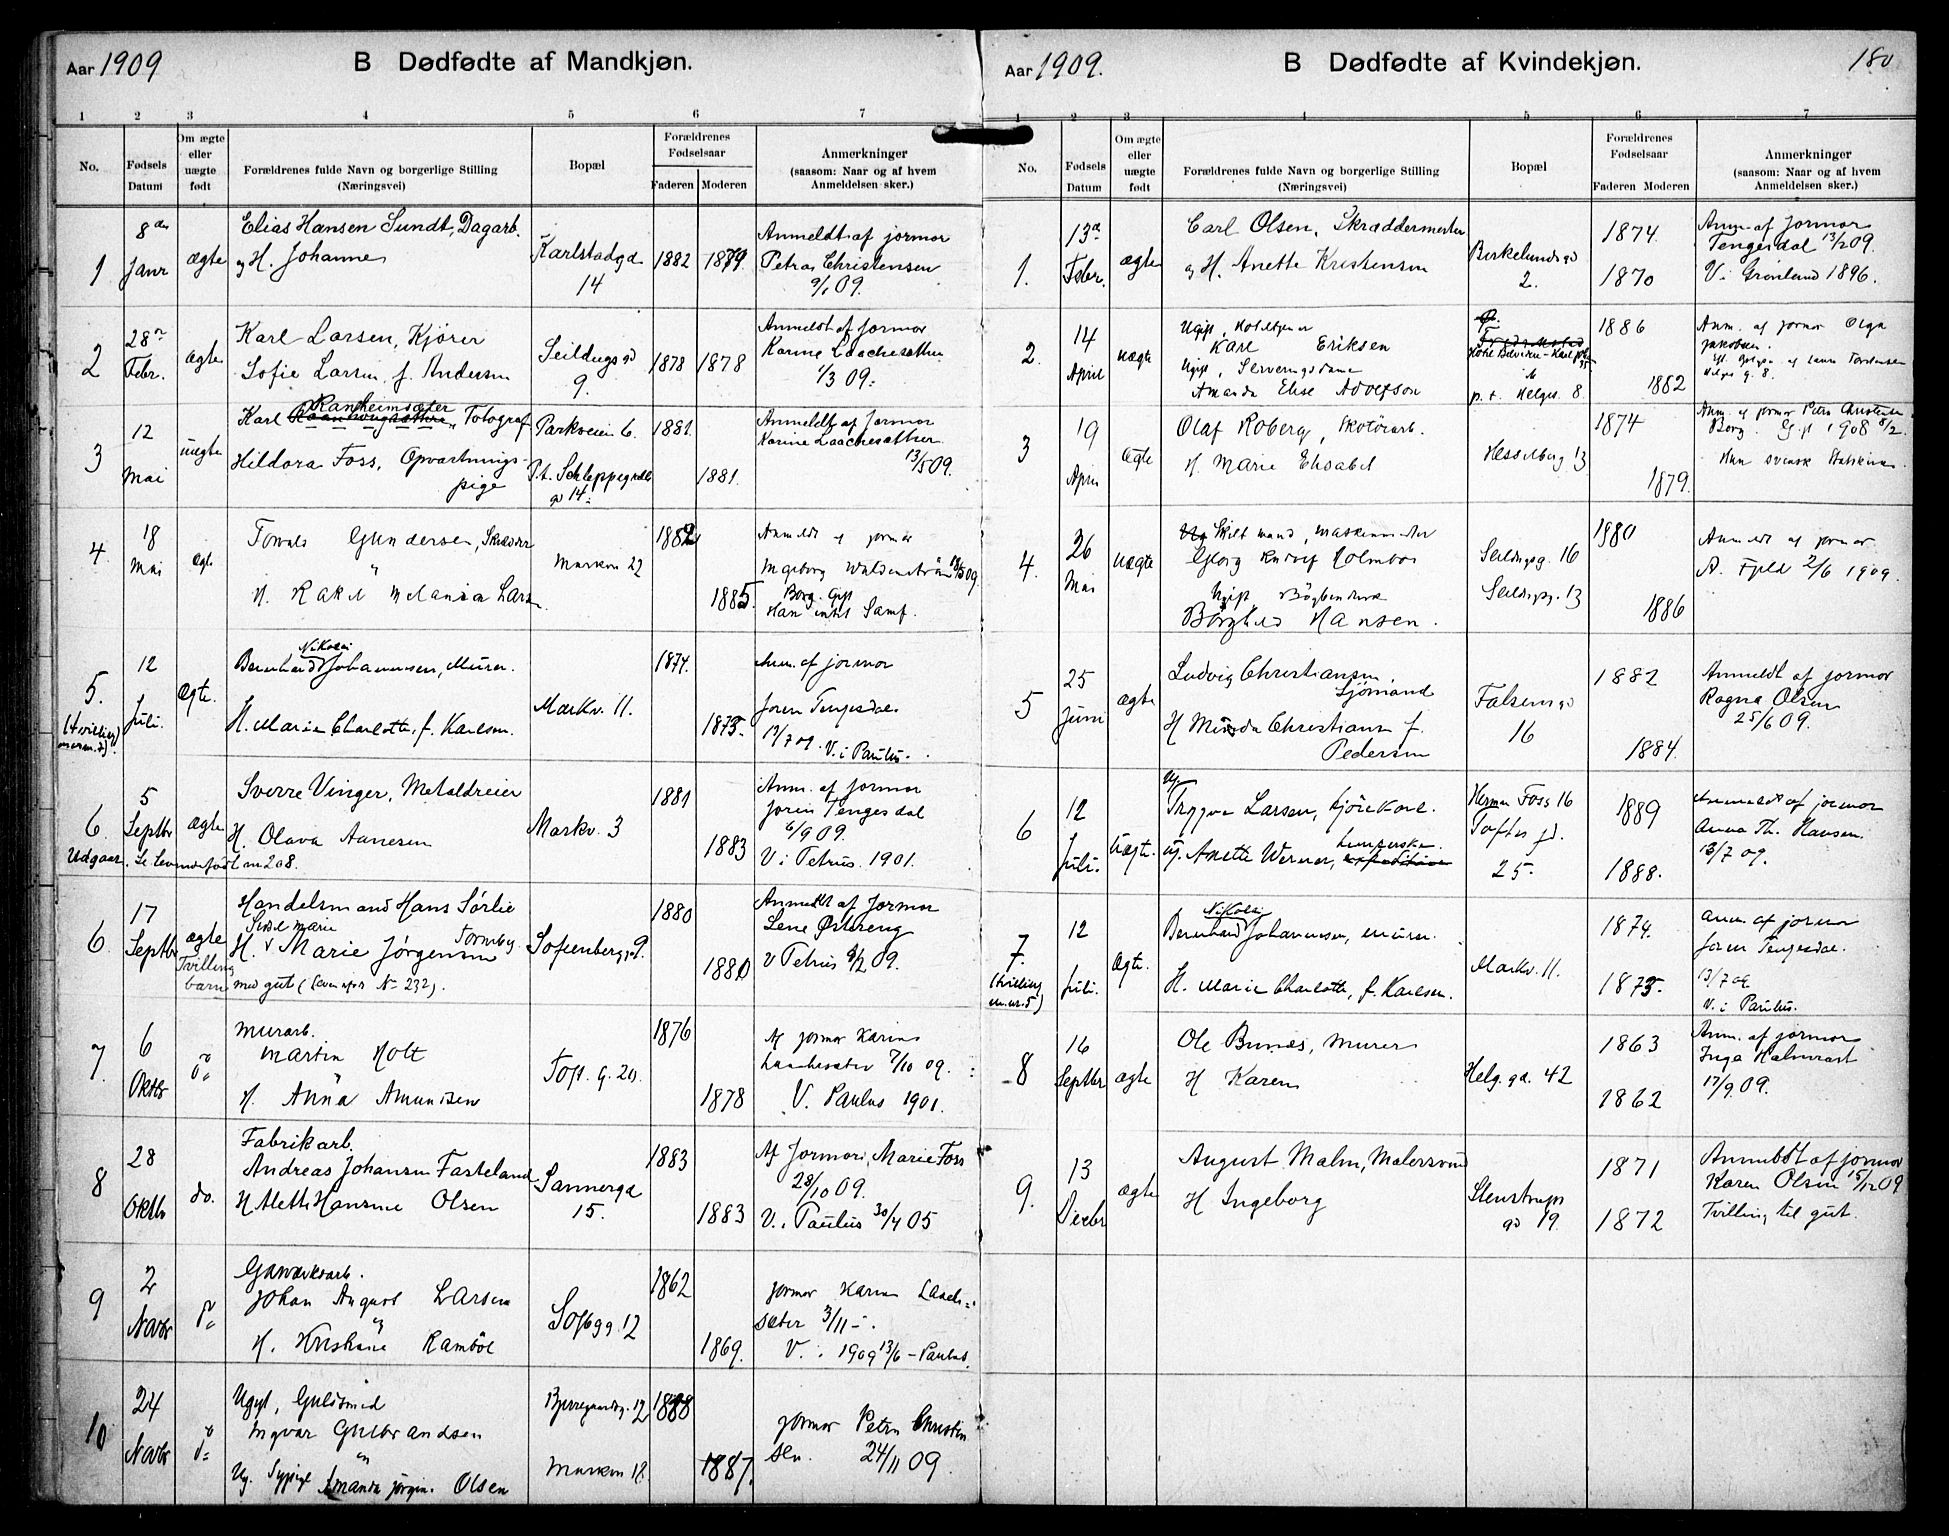 Aar 1909
B Dødfødte af Mandkjøn.
1 2 3 4 5 6 7
No.
Fødsels Datum
Om ægte eller uægte født
Forældrenes fulde Navn og borgerlige Stilling (Næringsvei)
Bopæl
Forældrenes Fødselsaar
Faderen Moderen
Anmerkninger (saasom: Naar og af hvem Anmeldelsen sker.)
1
8de Janr
ægte
Elias Hansen Sundt, Dagarb.
og H. Johanne
Karlstadgd
14
1882 1879
Anmeldt af jormor
Petra Christensen
9/1 09.
2
28
Febr.
ægte
Karl Larsen, Kjører
Sofie Larsen f. Andersen
Seildugsgd
9.
1878 1878
Anmeldt af Jormor
Karine Laachesæther
1/3 09.
3
12
Mai
uægte
Ranheimsæter
Karl Fotograf
Hildora Foss, Opvartnings-
pige
Parkveien 6.
P.t. Schleppegrells
gd 14
1881.
1881.
Anmeldt af Jormor
Karine Laachesæther
13/5 09.
4
18
Mai
ægte
Gundersen, Skrædder
H. Rakel Melania Lars
Markvn 22
1882
1885.
Anmeldt af jormor
Ingeborg
Borg. Gift
Han intet Samf.
5.
(tvilling
12
Juli.
Ægte.
Nikolai
Bernhard Johannesen, Murer.
H. Marie Charlotte, f. Karlsen.
Markv. 11.
1874.
1875.
Anm. af jormor
Joren Tengesdal
13/7 09. V. i Paulus.
6
5
Septbr
ægte
Sverre Vinger, Metaldreier
H. Olava Aanesen
Udgaar. Se Levendefødt nr 208.
Markv. 3
1881
1883
Anm. af jormor
Joren Tengesdal
6/9 09.
V i Petrus 1901.
6
17
Septbr
ægte
Tvilling
barn
Handelsmand Hans Sørlie
H. Marie Jørgensen
med gut (Levende No 232).
Sofienbergg. 9.
1880
1880
Anmeldt af Jormor
Lene Østereng
V Petrus 09.
7
6
Oktbr
do
Murarb.
Martin Holt
H. Anna Amundsen
Toft. g. 20.
1876
1878
Af jormor Karine
Laachesæter 7/10 09.
V. Paulus 1901.
8
28
Oktbr
do.
Fabrikarb.
Andreas Johansen Fasteland
H Aleth Hansine Olsen
Sannergd
15.
1883
1883
Af Jormor, Marie Foss
28/10 09.
V. i Paulus 30/4 05
9
2
Novbr
do
Gasværksarb.
Johan August Larsen
og
H. Kristiane Rambøl
Sofgg. 12
1862
1869.
Jormor Karine Laache-
sæter 3/11
V. i 1909 13/6 - Paulus.
10
24
Novbr
do
Ugift, Guldsmed
Ingvar Gulbrandsen
og
Ug. Sypige Amanda Jørgin. Olsen
Bjerregaardsg. 12
Markvn 18.
1888
1887.
Jormor Petra Christen
sen. 24/11 09.
Aar 1909.
B Dødfødte af Kvindekjøn.
180
1 2 3 4 5 6 7
No.
Fødsels Datum
Om ægte eller uægte født
Forældrenes fulde Navn og borgerlige Stilling (Næringsvei)
Bopæl
Forældrenes Fødselsaar
Faderen Moderen
Anmerkninger (saasom: Naar og af hvem Anmeldelsen sker.)
1.
13de
Febr.
ægte
Carl Olsen, Skræddermester
og H. Anette Kristensen
Birkelundsgd
2.
1874.
1870
Anm. af Jormor
Tengesdal 13/2 09.
V. i Grønland 1896.
2.
14
April
uægte
Ugift, Hoteltjener
Karl Eriksen
Ugift, Serveringsdame
Amanda Elise Adolfson
p. t. Helges. 8
1886
1882
Anm. af jormor Olga
Jakobsen.
3
19
April
Ægte
Olaf Roberg, Skotøiarb.
H. Marie Elisabet
Hesselberg 13
1874
1879.
Anm. af jormor Petra Christensen
Borg. Gift 1908 8/2.
Hun svensk Statskirke.
4.
26
Mai
uægte
Skilt mand, maskinmester
Georg Rudolf Holmboe
Ugift Bogbinderske
Borghild Hansen.
Seildugsg. 16
Seildugsg. 13
1880
1886
Anmeldt af jormor
A. Fjeld 2/6 1909.
5
25
Juni
ægte
Ludvig Christiansen,
Sjømand
H Minda Christiansen f.
Pedersen
Falsensgd
16
1882
1884.
Anmeldt af jormor
Ragna Olsen
25/6 09.
6
12
Juli.
Uægte.
Ug.
Trygve Larsen, Kjørekarl.
ug. Anette Werner,
Herman Foss 16
Toftes gd.
25.
1889
1888.
Anmeldt af jormor
Anna Th. Hansen.
13/7 09.
7.
(tvilling
m. nr. 5)
12
Juli.
Ægte.
Nikolai
Bernhard Johannesen, murer.
H. Marie Charlotte, f. Karlsen.
Markv. 11.
1874.
1875.
Anm. af jormor
Joren Tengesdal.
13/7 09
V. i Paulus.
8
16
Septbr
ægte
Ole Bunæs, Murer
H Karen
Helg. gd. 42
1863
1862
Anm. af jormor
Inga Halmrast
17/9 09.
9.
13
Decbr
ægte
August Malm, Malersvend
H Ingeborg
Stenstrups
gd 19.
1871
1872
Anmeldt af jormor
Karen Olsen 15/12 09
Tvilling til gut.